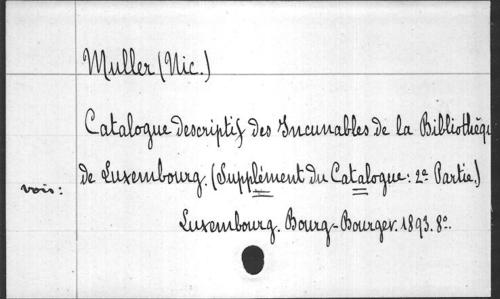 Muller (Nic.)
Catalogue descriptif des Incunables de la Bibliothèqu
de Luxembourg. (Supplément du Catalogue: 2e Partie.)
vois:
Luxembourg. Bourg-Bourger. 1893. 8o.